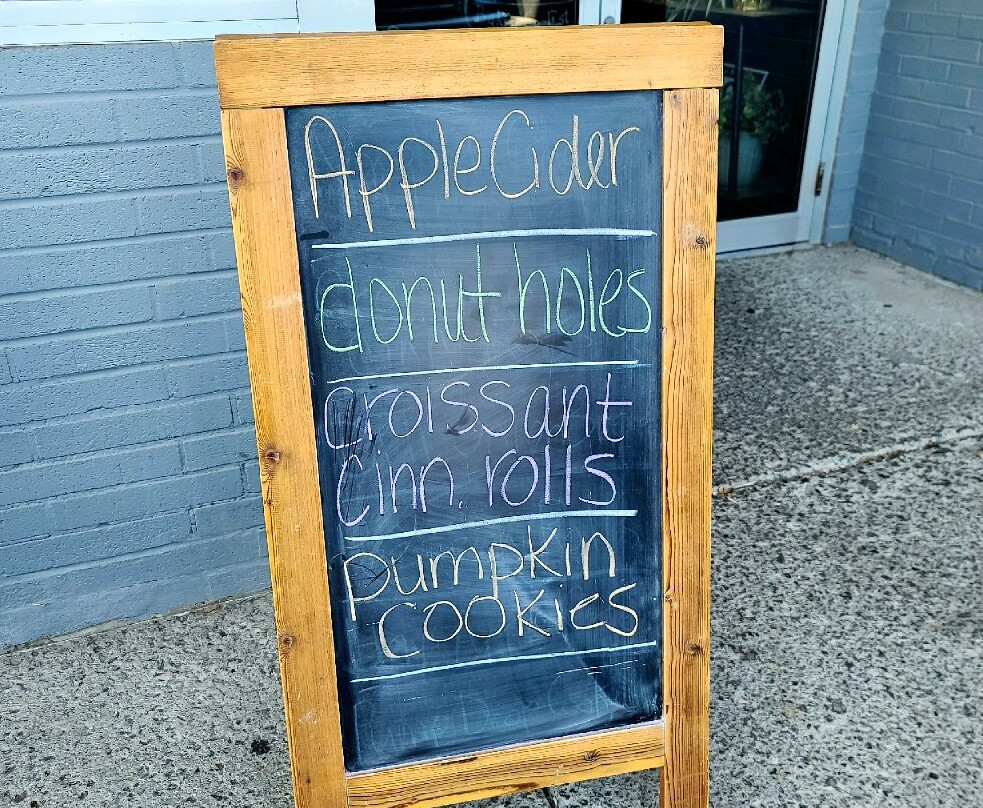 Apple Cider
donut holes
Croissant
Cinn. rolls
pumpkin
cookies